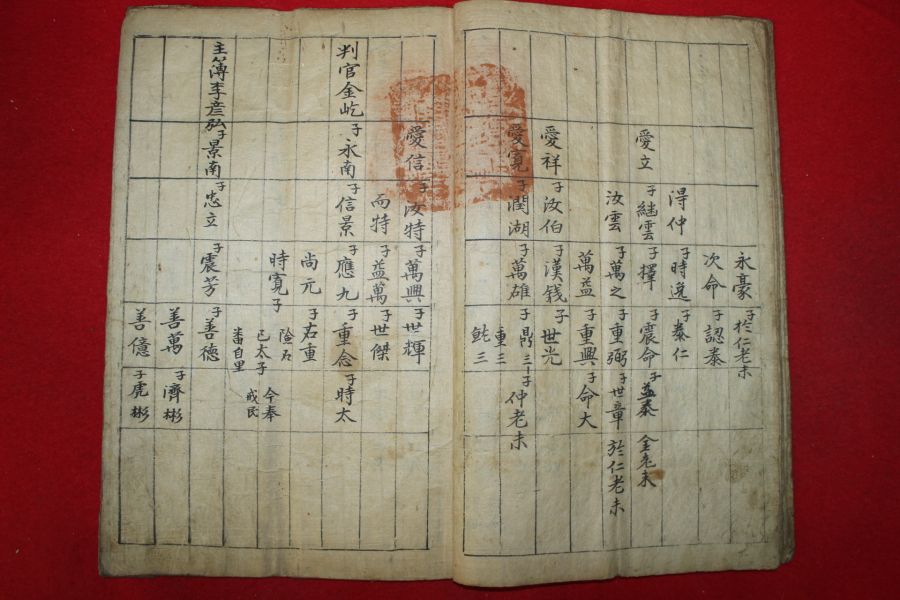 永豪 子 於仁老未
次命 子 認泰
得仲 子 時逸 子 泰仁
愛立 子 繼雲 子 擇 子 震命 子 益泰 金老未
汝雲 子 萬之 子 重弼 子 世章 於仁老未
萬益 子 重興 子 命大
愛祥 子 汝伯 子 漢錢 子 世光
愛寬 子 潤湖 子 萬雄 子 鼎三 子 仲老未
重三
三
愛信 子 汝特 子 萬興 子 世輝
而特 子 益萬 子 世傑
判官金屹 子 永南 子 信景 子 應九 子 重念 子 時太
尚元 子 右重
時寬 子
已太 子 今奉
戒民
番自里
主簿李彦弘 子 景南 子 忠立 子 震芳 子 善德
善萬 子 濟彬
善億 子 虎彬